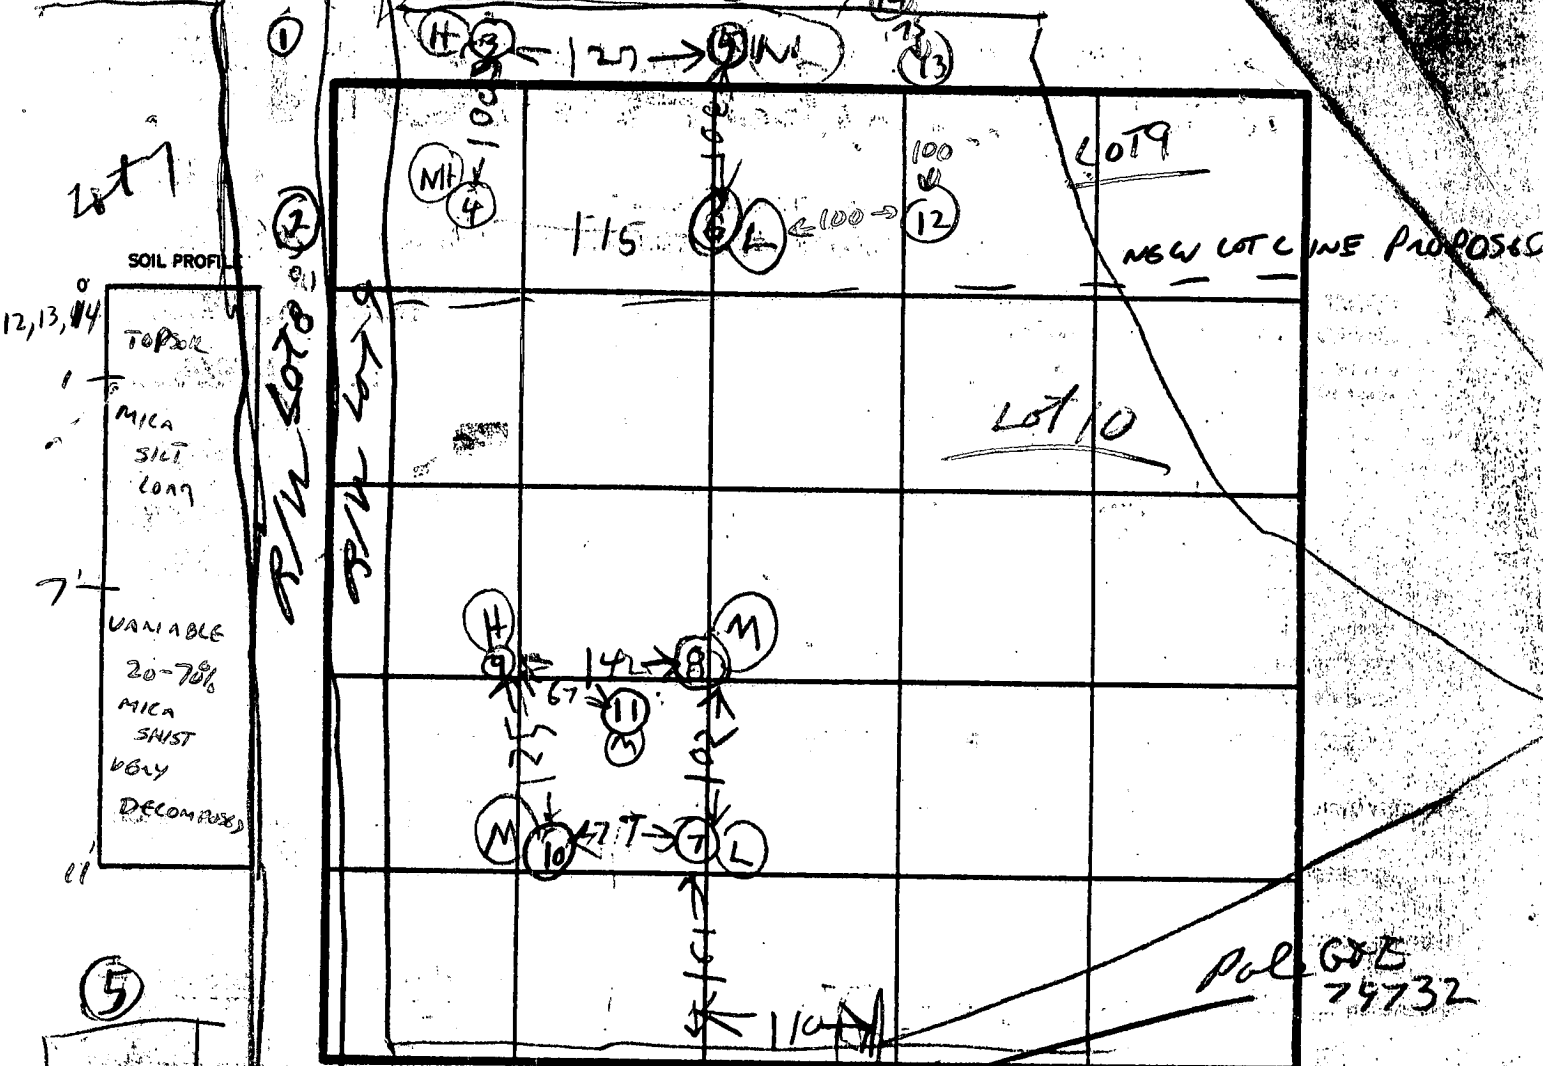 1
H 3 127 5
13
100
100
LOT 9
Lot 7
MH
4
2
115
6 L
100
100
12
NEW LOT LINE PROPOSED
SOIL PROFILE
0
12, 13, 14
TOPSOIL
1'
MICA
SILT
LOAM
7'
VARIABLE
20-70%
MICA
SHIST
VERY
DECOMPOSED
11'
R/W LOT 8
R/W LOT 9
LOT 10
H
9 142 8 M
67
11
M
125
102
M
10 7 L
161
110
Pole G&E
74732
5